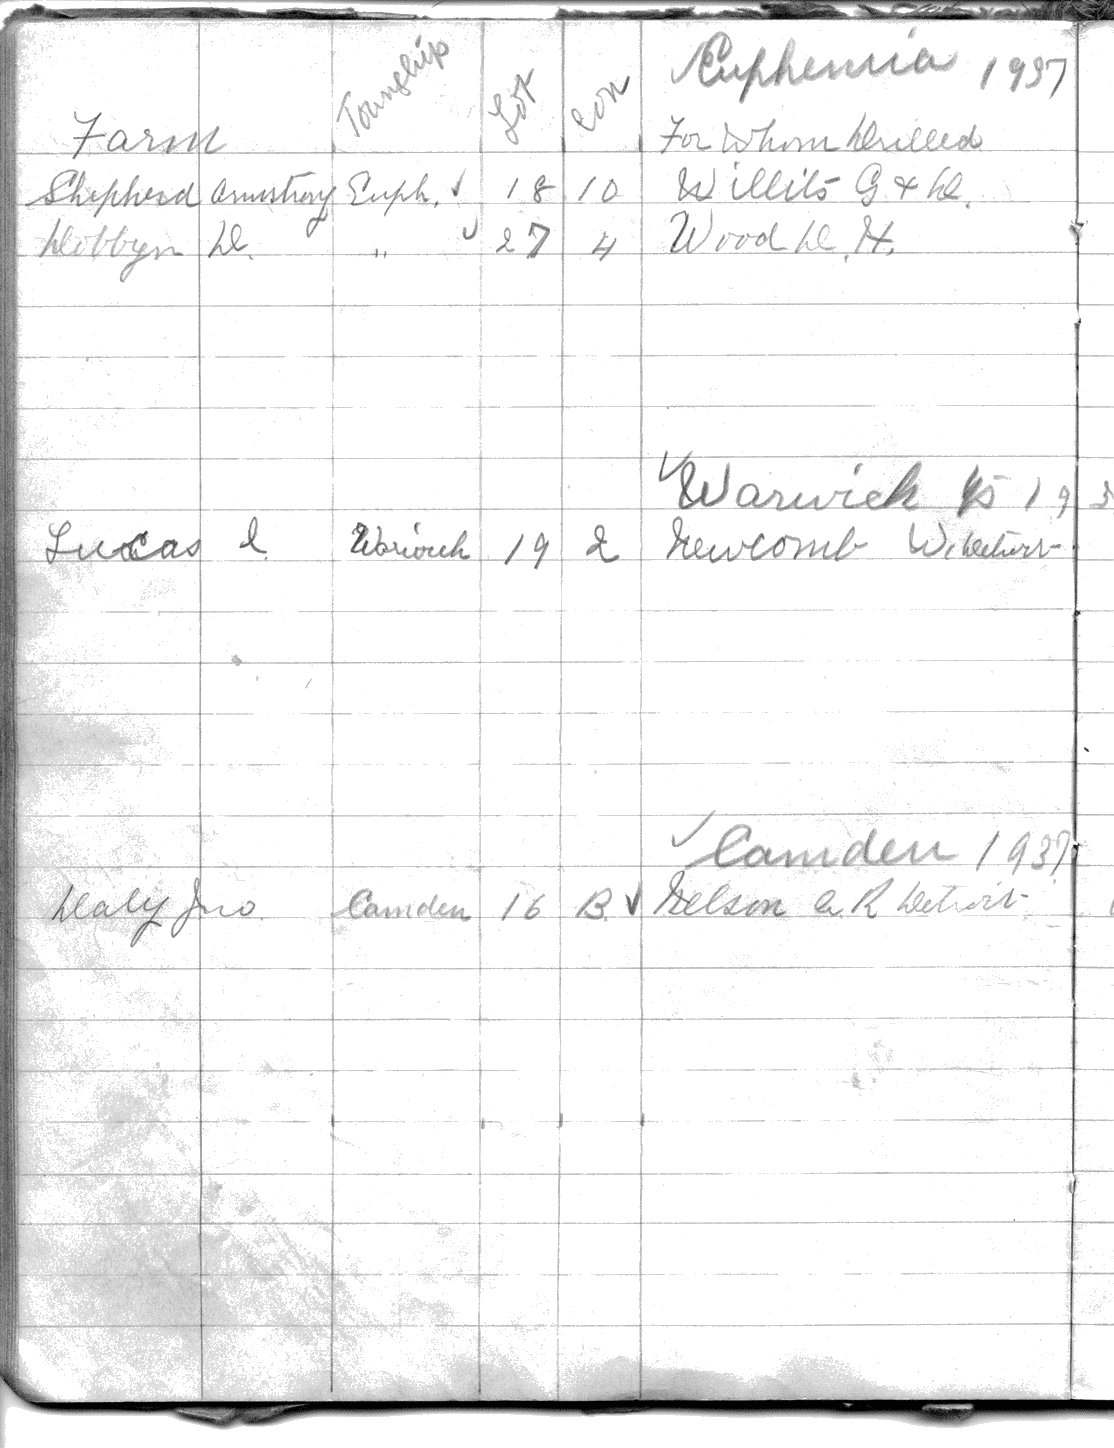 ✓ Euphemia 1937
Farm Township Lot Con For Whom Drilled
Shepherd Armstrong Euph. ✓ 18 10 Willits G & D.
Dobbyn D. " ✓ 27 4 Wood D. H.
✓ Warwick 193
Lucas Warwick 19 2 Newcomb W. Detroit
✓ Camden 1937
Daly Jno. Camden 16 B ✓ Nelson A. R Detroit